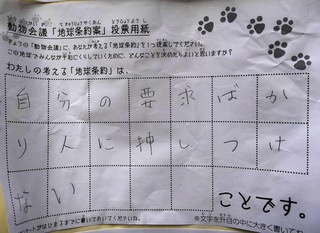 動物会議「地球条約案」投票用紙
きょうの「動物会議」に、あなたが考える「地球条約」を1つ提案してください。
この地球でみんなが平和にくらしていくために、どんなことを決めたらよいと思いますか?
わたしの考える「地球条約」は、
自分の要求ばか
り人に押しつけ
ない
ことです。
※文字を升目の中に大きく書いてね